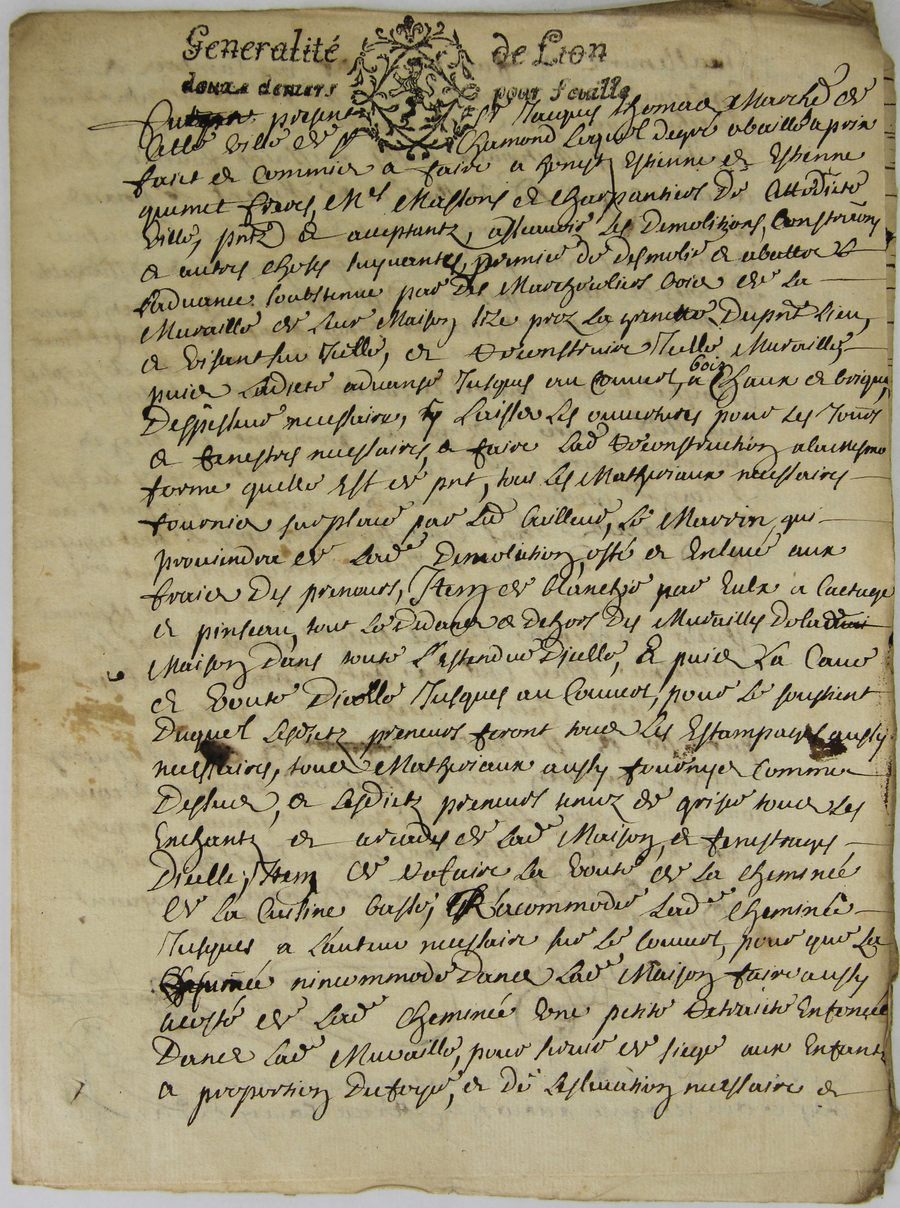 Generalité de Lion
douze deniers pour feuille
present Sr Jacques Thomas Marché de
Cette Ville de St Chamond Lequel de gré a baillé a prix
faict et commis a faire a honest Estienne et Estienne
quimet freres, Mes Massons et Charpantiers de Cette dicte
Ville, pntz et acceptantz, assauoir Les Demolitions, Constructions
et autres choses suyuantes, premier de desmolir et abattre
L'aduance soubstenue par des bois de La
Muraille de leur Maison size proz La Du pnt Lieu,
et visant sur Icelle, et reconstruire Icelle Muraille
puis Ladicte aduance Jusques au Couuert, a Chaux et brique, bois
Despesseur necessaire, y Laisser Les ouuertures pour Les Jours
et fenestres necessaires et faire Lad reconstruction a la mesme
forme quelle Est de pnt, tous Les Matheriaux necessaires
fournis sur place par Led bailleur, Le Marrin, qui
prouiendra de Lade Demolition, osté et Enleué aux
fraicz Des preneurs, Item de blanchir par Eulx a Laictage
et pinseau, tout Le Dedans et dehors Des Murailles de lad
Maison Dans toute L'estendue D'icelle, Et puis La Caue
et Voute Dicelle Jusques au Couuert, pour Le soustient
Duquel Lesdictz preneurs feront tous Les Estampages aussy
necessaires, tous Matheriaux aussy fournys Comme
Dessus, et Lesdictz preneurs tenuz de griser tous Les
Enchantz et arcades de Lade Maison, et fenestrages
Dicelle, Item de refaire La Voute de La Cheminée
De La Cuisine basse, Racommoder Lade Cheminée
Jusques a L'auteur necessaire sur Le Couuert, pour que La
fumée nincommode Dans Lade Maison, faire aussy
a costé de Lade Cheminée Vne petite Retraicte Enfoncée
Dans Lade Muraille, pour seruir de siege aux Enfantz
a proportion Du foyé, et De Lesleuation necessaire et